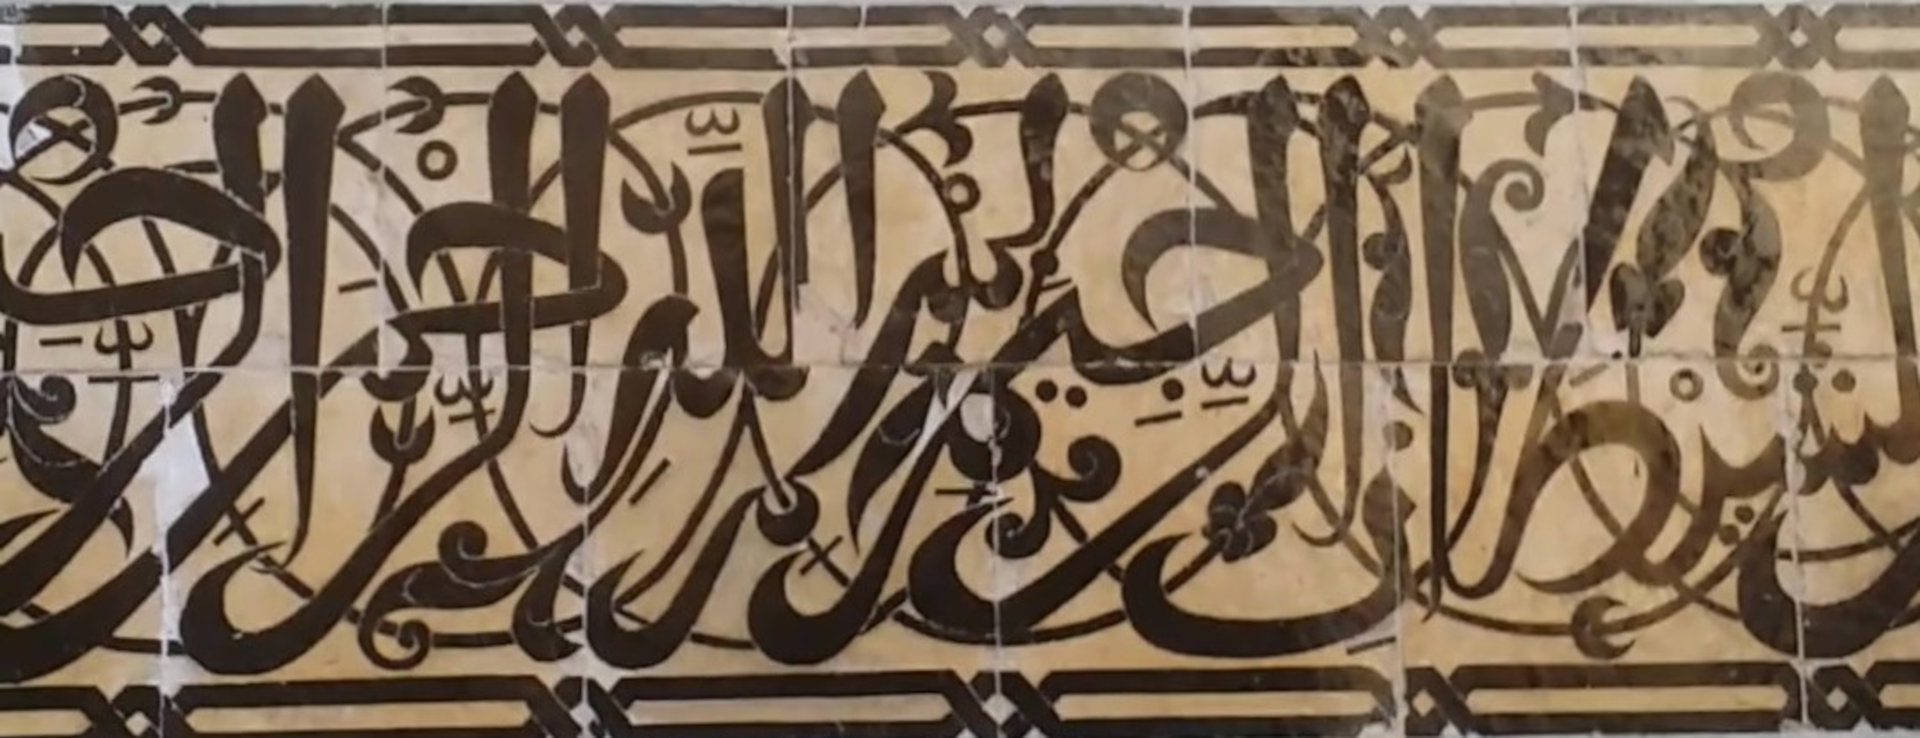 الشيطان الرجيم بسم الله الرحمن الرحيم